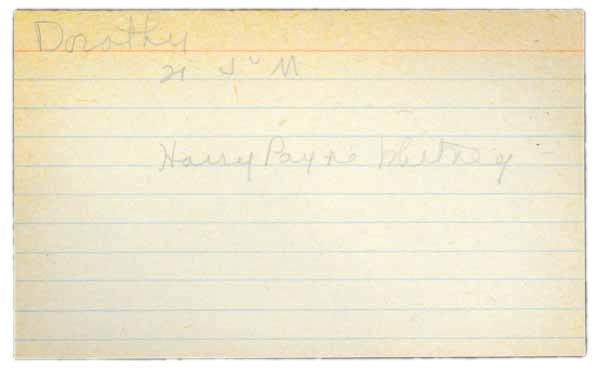 Dorothy
21 J u M
Harry Payne Whitney